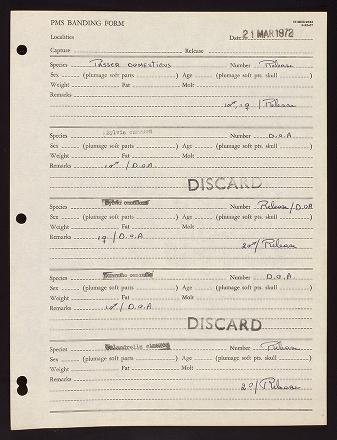 PMS BANDING FORM
Localities Date 21 MAR 1972
Capture Release
Species PASSER DOMESTICUS Number Release
Sex (plumage soft parts ) Age (plumage soft pts. skull )
Weight Fat Molt
Remarks
/Release
Species Sylvia Number D.O.A
Sex (plumage soft parts ) Age (plumage soft pts. skull )
Weight Fat Molt
Remarks 10♂/D.O.A
DISCARD
Species Sylvia Number Release/D.O.A
Sex (plumage soft parts ) Age (plumage soft pts. skull )
Weight Fat Molt
Remarks 1♀/D.O.A
/Release
Species Number D.O.A
Sex (plumage soft parts ) Age (plumage soft pts. skull )
Weight Fat Molt
Remarks /D.O.A
DISCARD
Species Number Release
Sex (plumage soft parts ) Age (plumage soft pts. skull )
Weight Fat Molt
Remarks
/Release